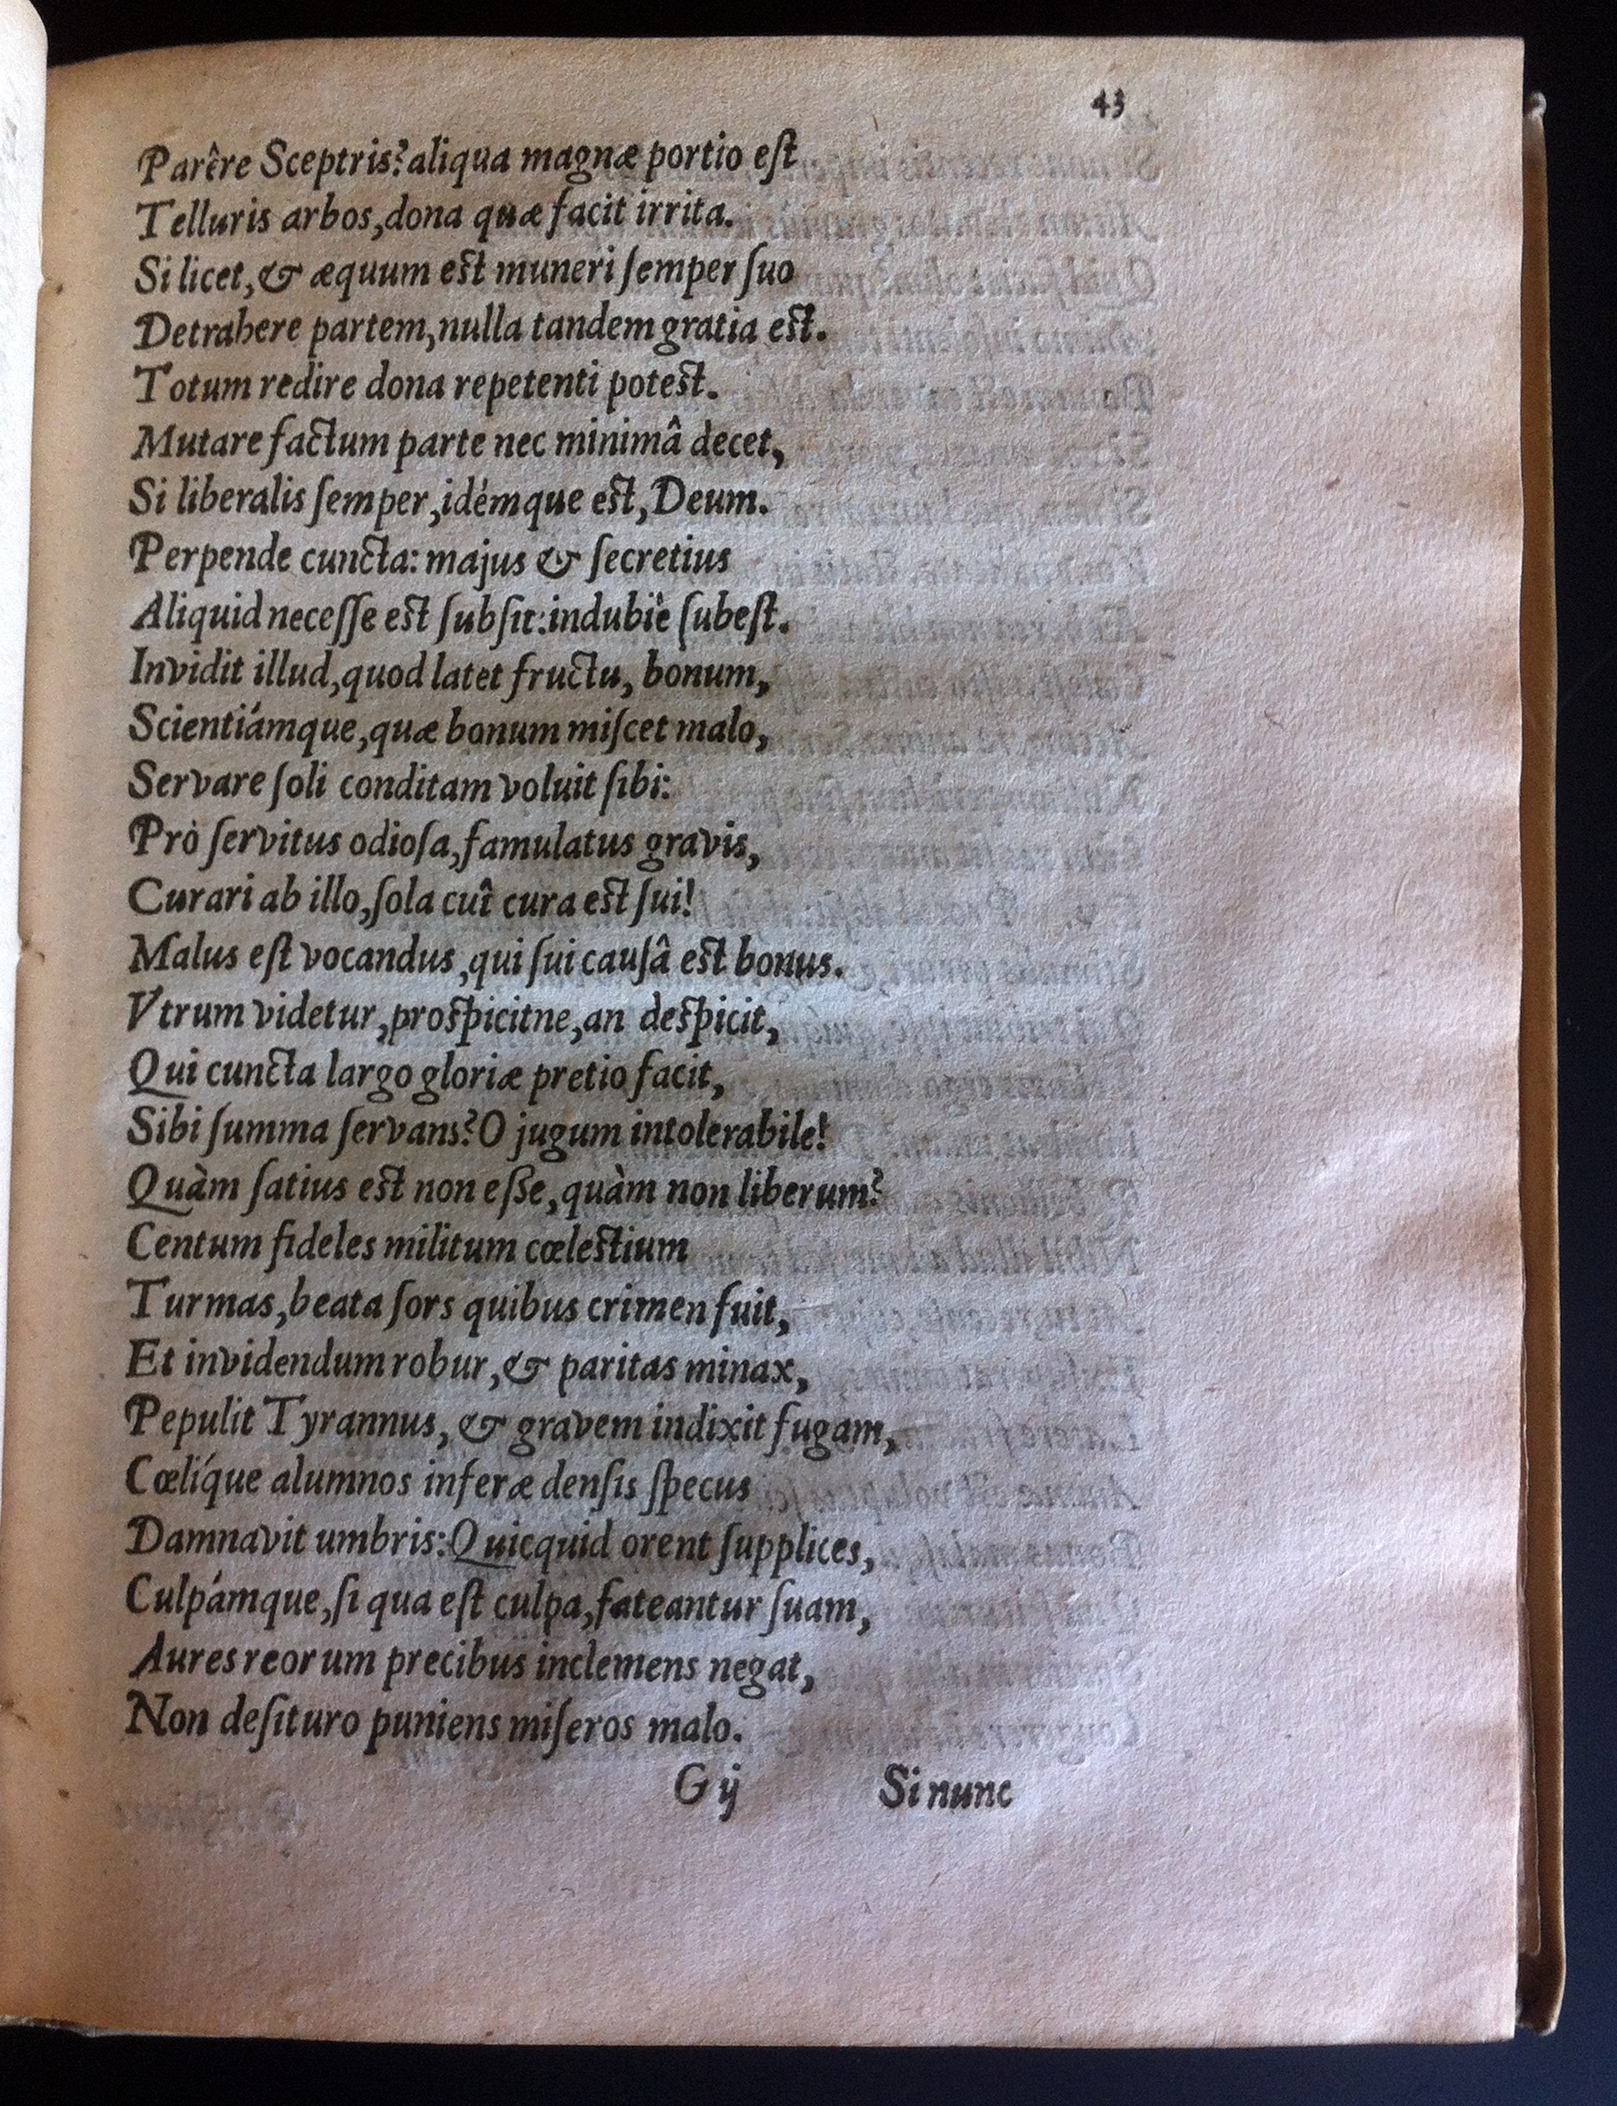 43
Parêre Sceptris? aliqua magnæ portio eſt
Telluris arbos, dona quæ facit irrita.
Si licet, & æquum eſt muneri ſemper ſuo
Detrahere partem, nulla tandem gratia eſt.
Totum redire dona repetenti poteſt.
Mutare factum parte nec minimâ decet,
Si liberalis ſemper, idémque eſt, Deum.
Perpende cuncta: majus & ſecretius
Aliquid neceſſe eſt ſubſit: indubiè ſubeſt.
Invidit illud, quod latet fructu, bonum,
Scientiámque, quæ bonum miſcet malo,
Servare ſoli conditam voluit ſibi:
Prò ſervitus odioſa, famulatus gravis,
Curari ab illo, ſola cuî cura eſt ſui!
Malus eſt vocandus, qui ſui cauſâ eſt bonus.
Vtrum videtur, proſpicitne, an deſpicit,
Qui cuncta largo gloriæ pretio facit,
Sibi ſumma ſervans? O jugum intolerabile!
Quàm ſatius eſt non eſſe, quàm non liberum?
Centum fideles militum cœleſtium
Turmas, beata ſors quibus crimen fuit,
Et invidendum robur, & paritas minax,
Pepulit Tyrannus, & gravem indixit fugam,
Cœlíque alumnos inferæ denſis ſpecus
Damnavit umbris: Quicquid orent ſupplices,
Culpámque, ſi qua eſt culpa, fateantur ſuam,
Aures reorum precibus inclemens negat,
Non deſituro puniens miſeros malo.
G ij Si nunc